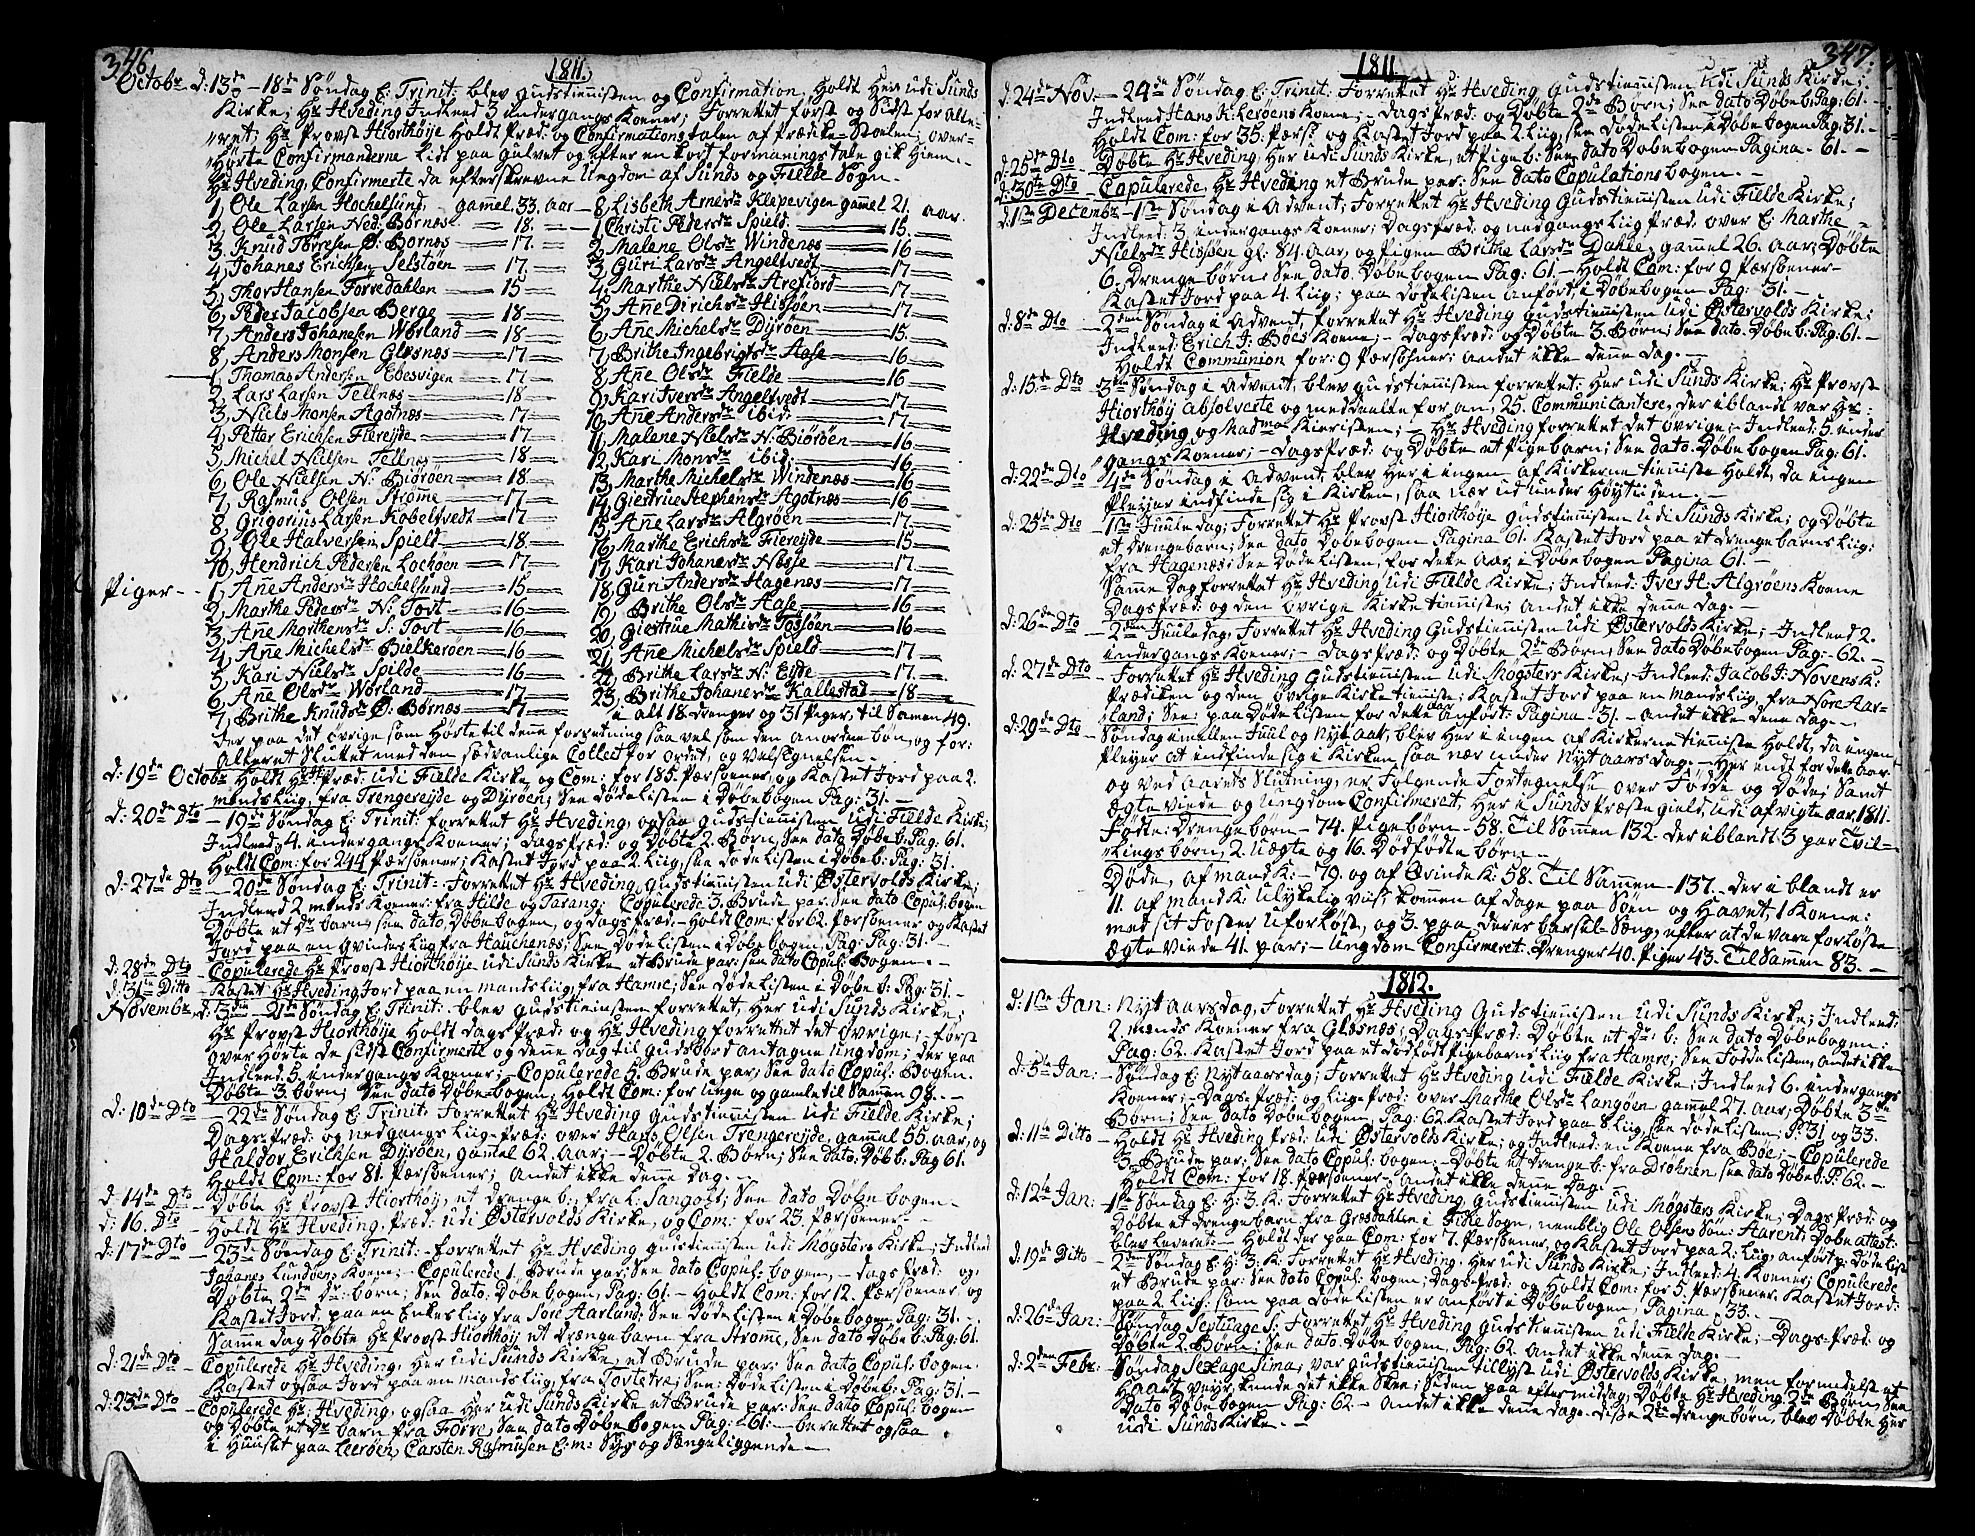 346.
1811.
Octobr d: 13de — 18de Søndag E: Trinit: blev Gudstienisten og Confirmation, Holdt Her udi Sunds
Kirke; Hr Hveding Indleed 3 undergangs Koener; Forrettet først og Sidst for Alte-
ret; Hr Provst Hiorthøije Holdt Præd: og Confirmations talen af Prædike-Stoelen; over-
Hørte Confirmanderne lidt paa Gulvet og efter en kort formanings tale gik Hiem. –
Hr Hveding, Confirmerte da efterskrevne Ungdom af Sunds og Fielde Sogn. –
1, Ole Larsen Hochelsund, gamel 33. aar
2, Ole Larsen Ned: Bornes — 18.
3, Knud Torresen Ø: Bornes — 17.
4, Johanes Erichsen Selstøen — 17.
5, Thor Hansen Forredahlen — 15
6, Peder Jacobsen Berge — 18
7, Anders Johansen Worland — 18
8, Anders Monsen Glesnes — 17
1, Thomas Andersen Ebesvigen — 17
2, Lars Larsen Tellnæs — 18
3, Niels Monsen Agotnæs — 17
4, Petter Erichsen Fiereijde — 17
5, Michel Nielsen Tellnæs — 18
6, Ole Nielsen N: Biörøen — 18
7, Rasmus Olsen Strømme — 17
8, Grigorius Larsen Kobeltvedt — 17
9, Ole Halversen Spield — 18.
10, Hendrich Pedersen Lochøen — 17
Piger – 1, Ane Andersdr Hochelsund — 15
2, Marthe Pedersdr N: Toft — 16
3, Ane Morthensdr S: Toft — 16
4, Ane Michelsdr Bielkerøen — 16
5, Kari Nielsdr Spilde — 16
6, Ane Olsdr Worland — 17
7, Brithe Knudsdr Ø: Bornæs — 17
8, Lisbeth Arnesdr Klepevigen gammel 21 aar.
1, Christi Pedersdr Spield — 15.
2, Malene Olsdr Windenæs — 16
3, Guri Larsdr Angeltvedt — 17
4, Marthe Nielsdr Arefiord — 17
5, Ane Dirichsdr Hissøen — 17
6, Ane Michelsdr Dyrøen — 15.
7, Brithe Ingebrigtsdr Aase — 16
8, Ane Olsdr Fielde — 16
9, Kari Iversdr Angeltvedt — 17
10, Ane Andersdr ibid: — 17
11, Malene Nielsdr N: Biörøen — 16
12, Kari Monsdr ibid: — 16
13, Marthe Michelsdr Windenes — 16
14, Giertrue Stephensdr Agotnæs — 16
15, Ane Larsdr Algrøen — 17.
16, Marthe Erichsdr Fiereijde — 15
17, Kari Johanesdr Næsse — 17
18, Guri Andersdr Hagenæs — 17
19, Brithe Olsdr Aase — 16
20, Giertrue Mathisdr Tøsøen — 16
21, Ane Michelsdr Spield — 17
22, Brithe Larsdr N: Eijde — 17.
23, Brithe Johanesdr Kallestad — 18
i alt 18. drenger og 31 Piger, til Samen 49.
der paa det øvrige som Hørte til dene forretning saa vel som den anordnede bøn, og for:
Alteret Sluttet med den sædvanlige Collect for ordet, og Velsignelsen. –
d: 19de Octobr Holdt Hr H: Præd: udi Fielde Kirke, og Com: for 185. Pærsoener, og Kastet Jord paa 2.
mandsliig, fra Trengereijde og Dyrøen; See dødelisten i Døbebogen Pag: 31. –
d: 20de Dto – 19de Søndag E: Trinit: forrettet Hr Hveding, ogsaa Gudstienisten udi Fielde Kirke;
Indleed 4. undergangs Koener; dagspræd: og Døbte 2. Børn, See dato Døbeb: Pag: 61.
Holdt Com: for 244 Pærsoener; Kastet Jord paa 2 Liig, see dødelisten i Døbeb: Pag: 31.
d: 27de Dto – 20de Søndag E: Trinit: Forrettet Hr Hveding Gudstienisten udi Østervolds Kirke;
Indleed 2 mands Koener fra Hilde og Tarang: Copulerede 3. Brude par: See dato Copul: bogen
Døbte et Dr barn; see dato, Døbebogen, og dagspræd: Holdt Com: for 62. Pærsoener og Kastet
Jord paa en Qvindesliig fra Hauchenæs; See Dødelisten i Døbebogen, Pag: Pag: 31. –
d: 28de Dto – Copulerede Hr Provst Hiorthøije udi Sunds Kirke et Brude par: see dato Copul: Bogen. –
d: 31te Ditto – Kastet Hr Hveding Jord paa en mandsliig, fra Hamre; See Dødelisten i Døbeb: Pag: 31. –
Novembr, d: 3die – 21de Søndag E: Trinit: – blev Gudstienisten forrettet, Her udi Sunds Kirke;
Hr Provst Hiorthøije Holdt dags Præd: og Hr Hveding forrettet det øvrige; først
over Hørte de sidst Confirmerte og dene dag til Gudsbord antagne Ungdom; der paa
Indleed 5. undergangs Koener; – Copulerede 6. Brude par; See dato Copul: Bogen.
Døbte 3. børn; See dato Døbe-bogen; Holdt Com: for unge og gamle til Samen 98. –
d: 10de Dto – 22de Søndag E: Trinit: Forrettet Hr Hveding Gudstienisten udi Fielde Kirke;
Dags-præd: og nedgangs Liig-præd: over Hans Olsen Trengereijde, gammel 55. aar, og
Haldor Erichsen Dyrøen, gamel 62. Aar; – Døbte 2. Børn; See dato: Døbb: Pag 61.
Holdt Com: for 81. Pærsoener; Andet ikke dene dag. –
d: 14de Dto – Døbte Hr Provst Hiorthøij, et drengeb: fra L: Sangolt; See dato Døbe bogen. –
d: 16. Dto – Holdt Hr Hveding, Præd: udi Østervolds Kirke, og Com: for 23. Pærsoener. –
d: 17de Dto – 23de Søndag E: Trinit: – forrettet Hr Hveding Gudstienisten udi Møgsters Kirke; Indleed
Johanes Lundøens Koene; – Copulerede 1. Brude par: See dato Copul: bogen, – dags Præd: og
Døbte 2de Dr: børn; See dato, Døbebogen, Pag: 61. – Holdt Com: for 12. Pærsoener og
Kastet Jord, paa en Enkes liig fra Søre Aarland; See Dødelisten i Døbebogen Pag: 31. –
Samme dag Døbte Hr Provst Hiorthøij et drengebarn fra Strome, See dato Døbeb: Pag: 61.
d: 21de Dto – Copulerede Hr Hveding, Her udi Sunds Kirke, et Brude par: See dato Copul: bogen.
Kastet ogsaa Jord paa en mandsliig, fra Tovletræ; See: Dødelisten i Døbeb: Pag: 31. –
d: 23de Dto – Copulerede Hr Hveding, ogsaa Her udi Sunds Kirke et Brude par: See dato Copul: bogen
og Døbte et Dr barn fra Forre, See dato Døbebogen Pag: 61. – berettet ogsaa
i Huuset paa Leerøen, Carsten Rasmusen E: m: Syg og Sængeliggende –
347.
1811.
d: 24de Nov. – 24de Søndag E: Trinit: Forrettet Hr Hveding Gudstienisten udi Sunds Kirke;
Indleed Hans K: Lerøens Koene; – Dagspræd: og Døbte 2de Børn; See dato Døbeb: Pag: 61. –
Holdt Com: for 35. Pærs: og Kastet Jord paa 2 Liig, see Dødelisten i Døbebogen Pag: 31. –
d: 25de Dto – Døbte Hr Hveding, Her udi Sunds Kirke, et Pigeb: See dato Døbebogen Pagina – 61. –
d: 30te Dto – Copulerede, Hr Hveding et Brude par: See dato Copulations bogen. –
d: 1ste Decembr – 1ste Søndag i Advent; Forrettet Hr Hveding Gudstienisten udi Fielde Kirke;
Indleed: 3 undergangs Koener; Dagspræd: og nedgangs Liig Præd: over E: Marthe
Nielsdr Hissøen gl: 84. Aar, og Pigen Brithe Larsdr Dahle, gammel 26. aar; Døbte
6. Drenge børn; See dato. Døbebogen Pag: 61. – Holdt Com: for 9 Pærsoener. –
Kastet Jord paa 4. Liig; paa dødelisten anført, i Døbebogen Pag: 31. –
d: 8de Dto – 2den Søndag i Advent forrettet Hr Hveding Gudstienisten udi Østervolds Kirke;
Indleed: Erich J: Böes Koene; – Dagspræd: og Døbte 3. Børn; See dato. Døbeb: Pag: 61. –
Holdt Communion for: 9 Pærsohner; andet ikke dene dag. –
d: 15de Dto – 3die Søndag i Advent, blev Gudstienisten forrettet: Her udi Sunds Kirke; Hr Provst
Hiorthøij absolverte og meddeelte for an, 25. Communicantere, der iblandt var Hr:
Hveding og Madme Kieristen; – Hr Hveding forrettet det øvrige; Indleed: 5. under
gangs Koener; – dagspræd: og Døbte et Pigebarn; See dato: Døbebogen Pag: 61.
d: 22de Dto – 4de Søndag i Advent, blev Her i ingen af Kirkerne tieniste Holdt, da ingen
Pleyjer indfinde sig i Kirken, saa nær ud under Høytiden. –
d: 25de Dto – 1ste Juule dag; Forrettet Hr Provst Hiorthøije Gudstienisten udi Sunds Kirke; og Døbte
et drengebarn; See dato Døbebogen Pagina 61. Kastet Jord paa et drengebarns liig:
fra Hagenæs; See Dødelisten, for dette Aar i Døbebogen Pagina 61. –
Samme Dag forrettet Hr Hveding udi Fielde Kirke; Indleed: Iver H: Algrøens Koene
Dagspræd: og den øvrige Kirketieniste; andet ikke dene dag. –
d: 26de Dto – 2den Juuledag, Forrettet Hr Hveding Gudstienisten udi Østervolds Kirke; – Indleed 2.
undergangs Koener; – dagspræd: og Døbte 2de Børn; See dato Døbebogen Pag: – 62. –
d: 27de Dto – Forrettet Hr Hveding Gudstienisten udi Møgsters Kirke; Indleed: Jacob J: Novens K:
Prædiken og den øvrige Kirketieniste; Kastet Jord paa en mandsliig, fra Nore Aar-
land; See: paa Dødelisten for dette aar anført: Pagina – 31. – andet ikke dene dag. –
d: 29de Dto – Søndag imellem Juul og Nyt aar, blev Her i ingen af Kirkerne tieniste Holdt, da ingen
Pleyer at indfinde sig i Kirken saa nær under Nyt aars dag. – Her endt for dette aar.
og ved aarets Slutning, er Følgende Fortegnelse over Fødde og Døde; Samt
Ægte viede og Ungdom Confirmeret, Her i Sunds Præste gield, udi afvigte aar, 1811.
Fødte: Drengebørn – 74. Pigebørn – 58. Til Sammen 132. der iblandt: 3 par Tvil-
lings børn, 2. Uægte og 16. Dødfødte børn. –
Døde, af mand K: – 79. og af Qvinde K: 58. Til Sammen – 137. – der iblandt er
11. af mand K: ulykeligviis, kommen af dage paa Søen og Havet, 1 Koene:
med sit Foster Uforløst, og 3. paa deres barsel-Sæng, efter at de vare forløste
Ægte viede 41. par; – Ungdom Confirmeret: Drenger 40. Piger 43. Til Samen 83. –
1812.
d: 1ste Jan: Nyt aarsdag, Forrettet Hr Hveding Gudstienisten udi Sunds Kirke; Indleed:
2. mands Koener fra Glæsnæs; Dags-præd: Døbte et Dr: b: See dato Døbebogen:
Pag: 62. Kastet Jord paa et dødfødt Pigebarns liig fra Hamre; See Føddelisten, andet ikke
d: 5te Jan: – Søndag E: Nytaarsdag; Forrettet Hr Hveding udi Fielde Kirke; Indleed 6. undergangs
Koener; – Dags-præd: og Liig-præd: over Marthe Olsdr Langøen gammel 27. aar; Døbte 3de
Børn; See dato Døbebogen, Pag: 62. Kastet Jord paa 8 Liig, see Dødelisten, P: 31 og 33.
d: 11te Ditto – Holdt Hr Hveding Præd: udi Østervolds Kirke; og Indleed: en Koene fra Bøe; – Copulerede
3. Brude par: See dato Copul: bogen – Døbte et drenge b: fra Drøhnen, see dato Døbeb: P: 62. –
Holdt Com: for 18. Pærsoener – Andet ikke dene dag. –
d: 12te Jan: – 1ste Søndag E: H: 3. K: Forrettet Hr Hveding Gudstienisten udi Møgsters Kirke; Dags Præd: og
Døbte et drengebarn fra Græsdahlen i Fiche Sogn, nemblig Ole Olsens Søn: Aarent; Døben attest:
blev Leveret: – Holdt der paa Com: for 7. Pærsoener, og Kastet Jord paa 2. Liig, anført p: Dødelist
d: 19de Ditto – 2den Søndag E: H: 3. K. Forrettet Hr Hveding. Her udi Sunds Kirke; Indleed: 4. Koener; Copulerede
et Brude par: See dato Copul: bogen; Dags-præd: og Holdt Com: for 5. Pærsoener. Kastet Jord:
paa 2. Liig, som paa Dødelisten er anført i Døbebogen, Pagina, 33. –
d: 26de Jan: – Søndag Septuages: Forrettet Hr Hveding Gudstienisten udi Fielde Kirke; – Dags-præd: og
Døbte 2. Børn; See dato. Døbe bogen, Pag: 62. Andet ikke dene dag. –
d: 2den Febr: – Søndag Sexagesima; var Gudstienisten tillyst udi Østervolds Kirke, men formedelst et
Haart veyr, kunde det ikke Skee; Siden paa efter middag, Døbte Hr Hveding, 2de Børn, See
dato Døbebogen Pag: 62. – Andet ikke dene dag. Disse 2de drengebørn, blev Døbte Her
udi Sunds Kirke. –